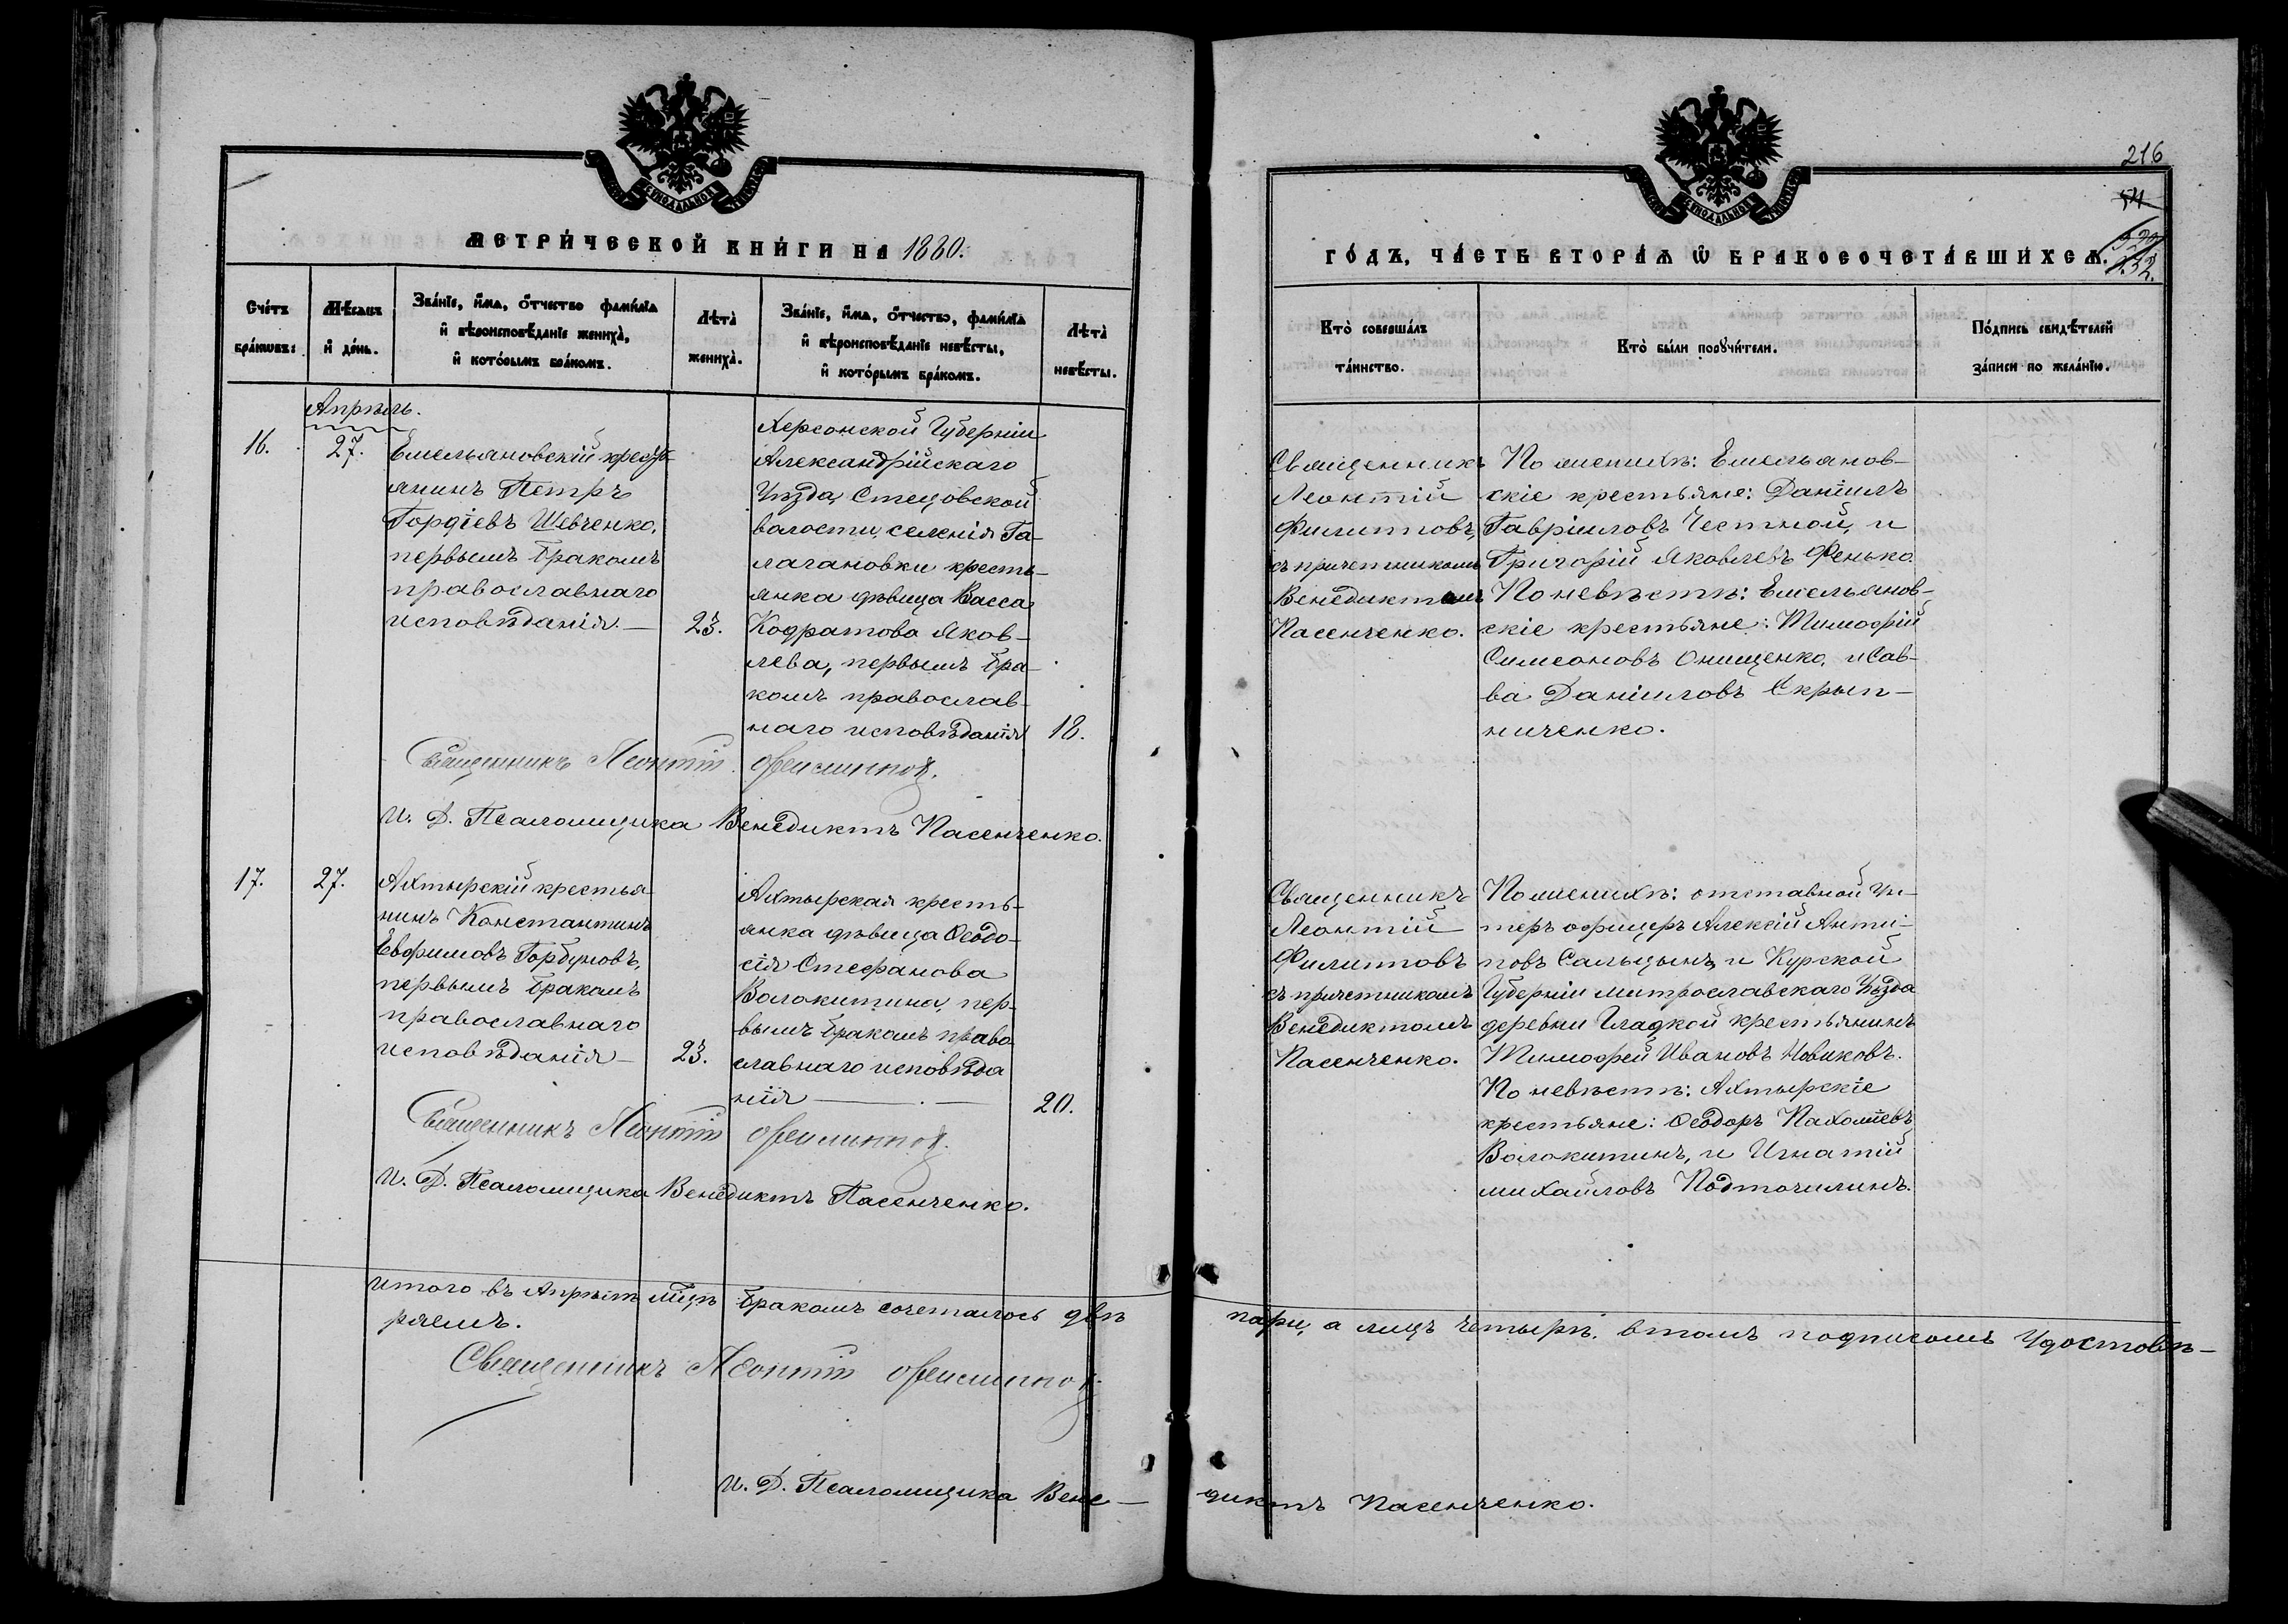 216
54
МЕТРИ́ЧЕСКОЙ КНИ́ГИ НА 1880.
ГО́ДЪ, ЧА́СТЬ ВТОРА́Ѧ Ѿ БРАКОСОЧЕТА́ВШИХСѦ.
Сче́тъ бра́кωвъ:
Мѣ́сѧцъ и҆ де́нь.
Зва́нїе, и҆́мѧ, ѻ҆́тчество фами́лїѧ
и҆ вѣроисповѣ́данїе жениха̀,
и҆ кото́рымъ бра́комъ.
Лѣта̀ жениха̀.
Зва́нїе, и҆́мѧ, ѻ҆́тчество, фами́лїѧ
и҆ вѣроисповѣ́данїе невѣ́сты,
и҆ кото́рымъ бра́комъ.
Лѣта̀ невѣ́сты.
Кто̀ соверша́лъ
та́инство.
Кто̀ бы́ли порꙋчи́тели.
По́дпись свидѣ́телей
за́писи по жела́нїю.
Апрѣль.
16.
27.
Емельяновскій кресть
янинъ Петръ
Гордіевъ Шевченко,
первымъ бракомъ
православнаго
исповѣданія.—
23.
Херсонской Губерніи
Александрійскаго
Уѣзда, Стецовской
волости, селенія Га-
лагановки кресть-
янка дѣвица Васса
Кодратова Яков-
лева, первымъ бра-
комъ православ-
наго исповѣданія
18.
Священникъ
Леонтій
Филипповъ,
съ причетникомъ
Венедиктомъ
Пасенченко.
По женихѣ: Емельянов-
скіе крестьяне: Даніилъ
Гавріиловъ Честной, и
Григорій Яковлевъ Фенько.
По невѣстѣ: Емельянов-
скіе крестьяне: Тимофій
Симеоновъ Онищенко, и Сав-
ва Даніиловъ Скрып-
ниченко.
Священникъ Леонтій Филипповъ.
И. Д. Псаломщика Венедиктъ Пасенченко.
17.
27.
Ахтырскій крестья-
нинъ Константинъ
Евфимовъ Горбуновъ,
первымъ бракомъ
православнаго
исповѣданія—
23.
Ахтырская кресть-
янка дѣвица Ѳеодо-
сія Стефанова
Волокитина, пер-
вымъ бракомъ право
славнаго исповѣда
нія
20.
Священникъ
Леонтій
Филипповъ
съ причетникомъ
Венедиктомъ
Пасенченко.
По женихѣ: отставной Ун-
теръ офицеръ Алексій Анти-
повъ Сальцынъ, и Курской
Губерніи Митрославскаго Уѣзда
деревни Гладкой крестьянинъ
Тимофей Ивановъ Новиковъ.
По невѣстѣ: Ахтырскіе
крестьяне: Ѳеодоръ Пахоміевъ
Волокитинъ, и Игнатій
Михайловъ Подточилинъ.
Священникъ Леонтій Филипповъ.
И. Д. Псаломщика Венедиктъ Пасенченко.
Итого въ Апрѣлѣ м҃цѣ бракомъ сочеталось двѣ пары, а лицъ четыри. въ томъ подписомъ Удостовѣ-
ряемъ.
Священникъ Леонтій Филипповъ
И. Д. Псаломщика Вене-диктъ Пасенченко.